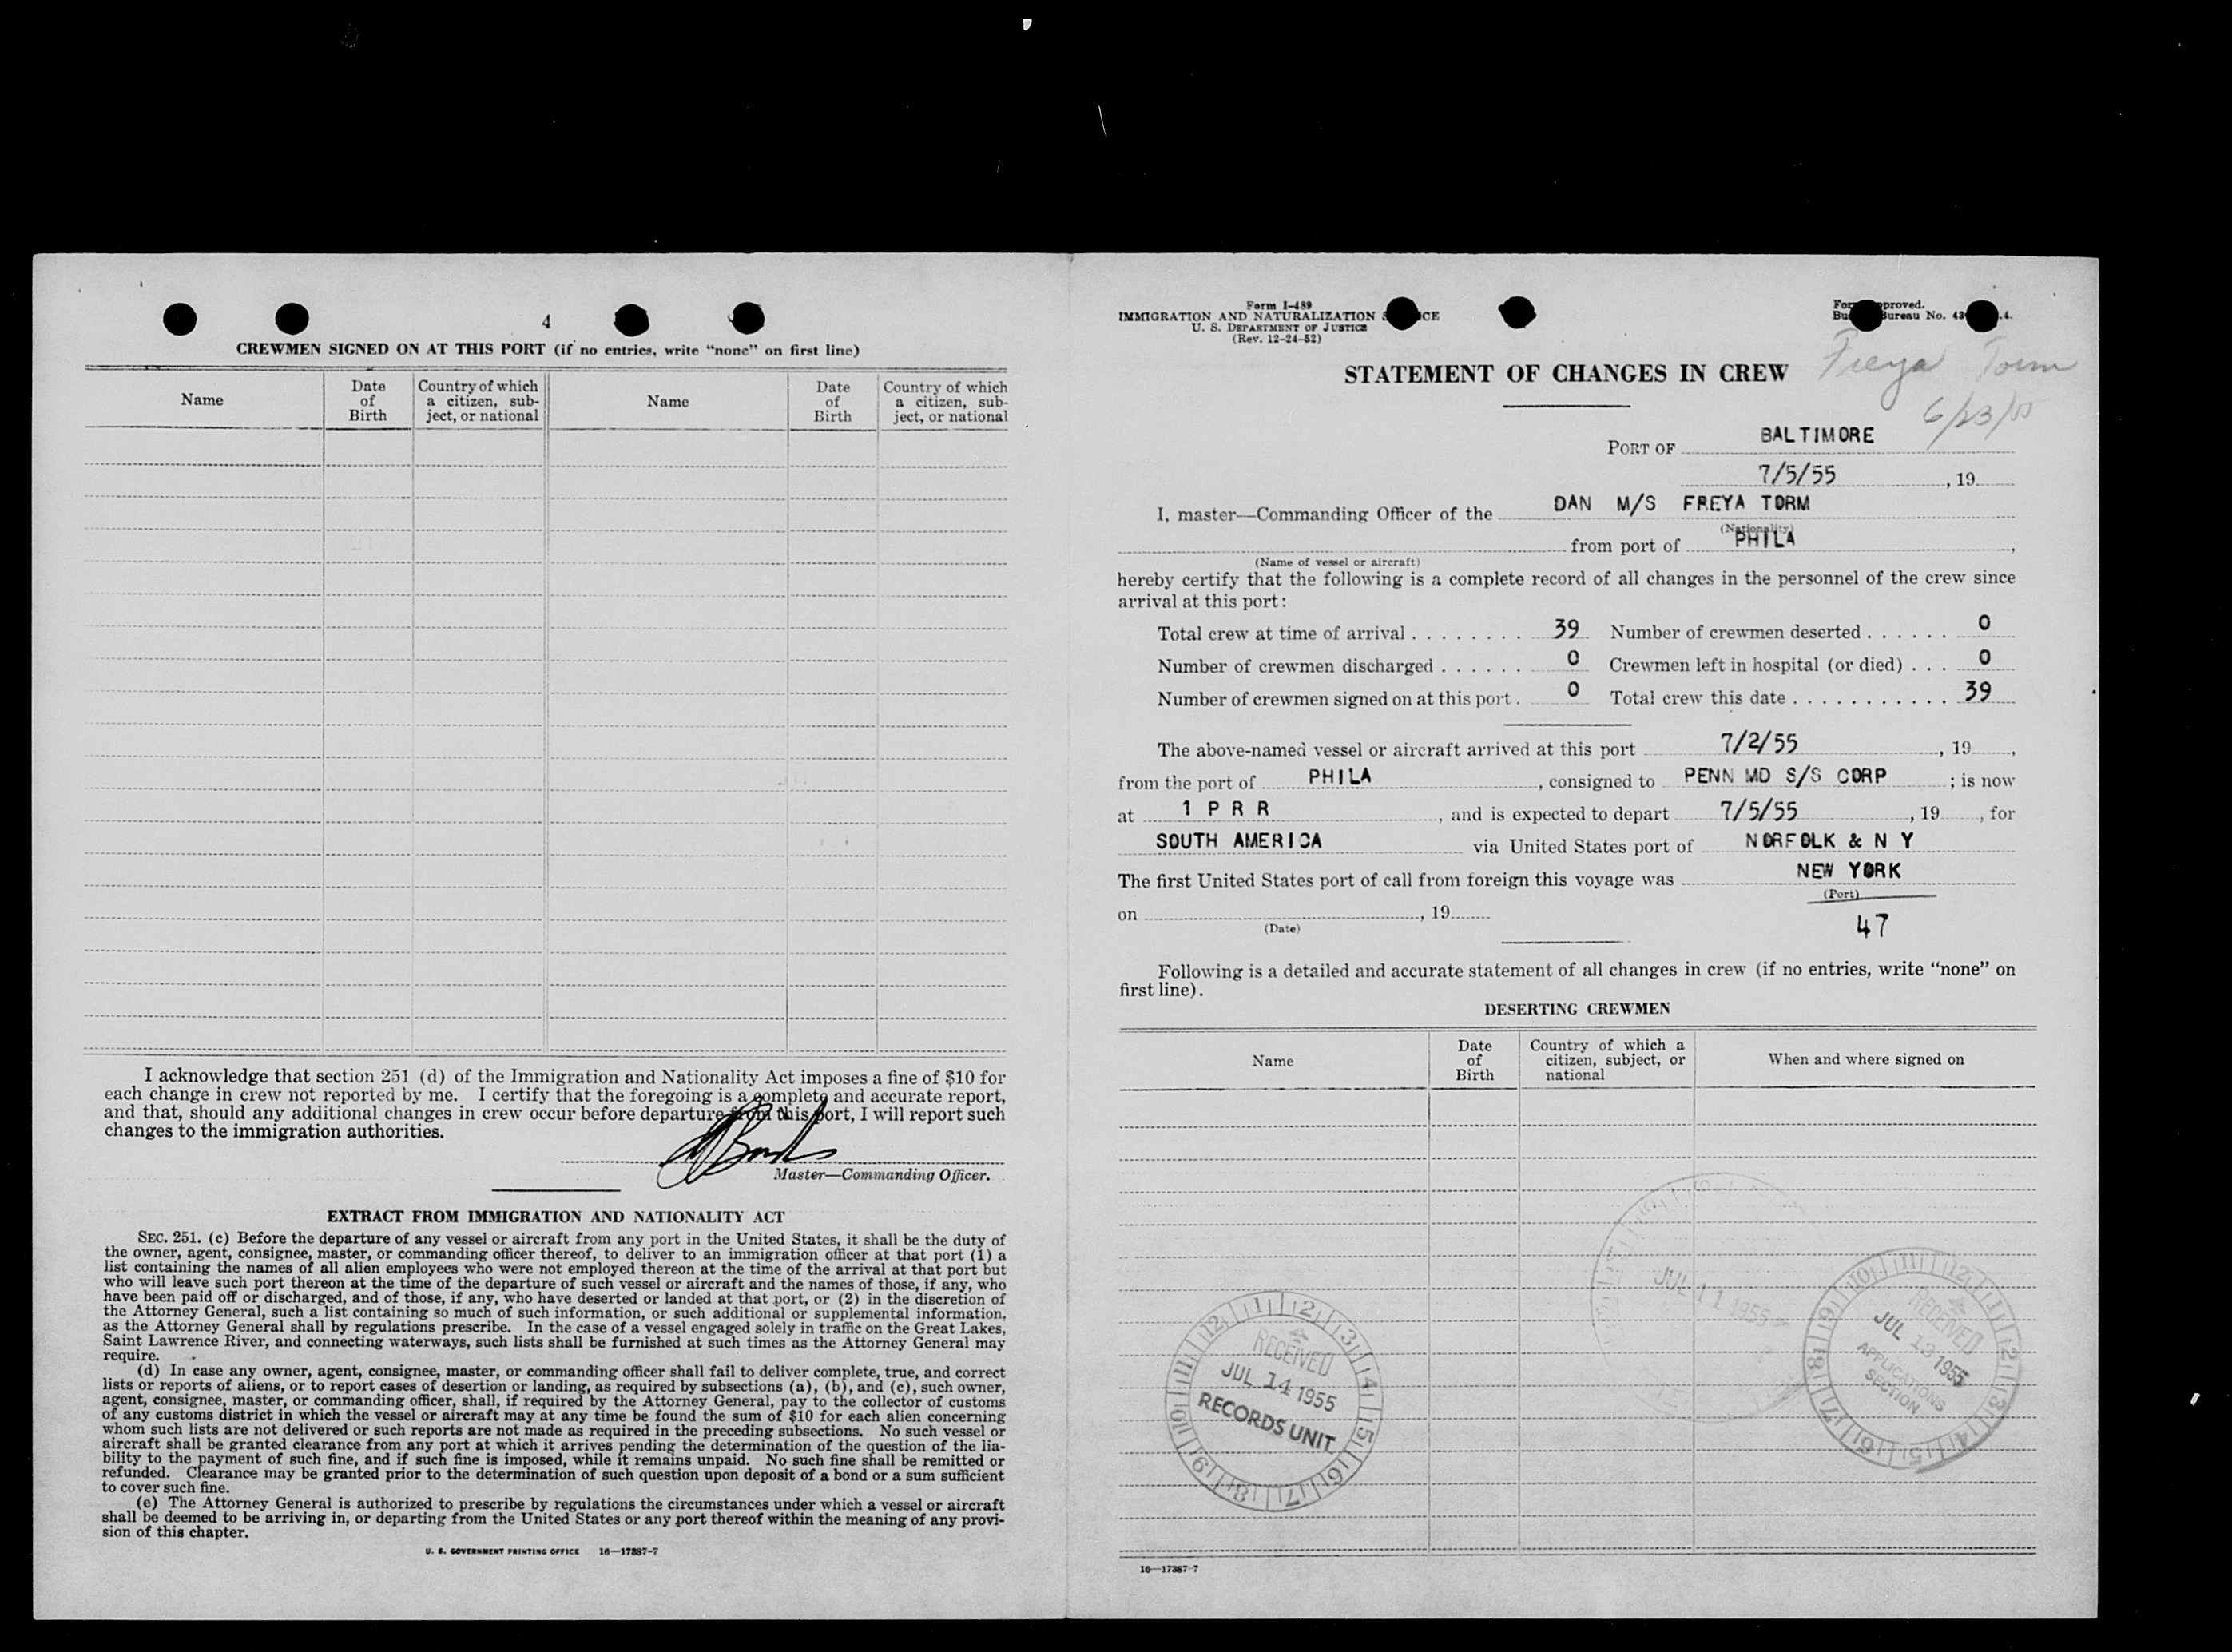 4
CREWMEN SIGNED ON AT THIS PORT (if no entries, write "none" on first line)
Name
Date of Birth
Country of which a citizen, subject, or national
Name
Date of Birth
Country of which a citizen, subject, or national
I acknowledge that section 251 (d) of the Immigration and Nationality Act imposes a fine of $10 for
each change in crew not reported by me. I certify that the foregoing is a complete and accurate report,
and that, should any additional changes in crew occur before departure from this port, I will report such
changes to the immigration authorities.
Master—Commanding Officer.
EXTRACT FROM IMMIGRATION AND NATIONALITY ACT
SEC. 251. (c) Before the departure of any vessel or aircraft from any port in the United States, it shall be the duty of
the owner, agent, consignee, master, or commanding officer thereof, to deliver to an immigration officer at that port (1) a
list containing the names of all alien employees who were not employed thereon at the time of the arrival at that port but
who will leave such port thereon at the time of the departure of such vessel or aircraft and the names of those, if any, who
have been paid off or discharged, and of those, if any, who have deserted or landed at that port, or (2) in the discretion of
the Attorney General, such a list containing so much of such information, or such additional or supplemental information,
as the Attorney General shall by regulations prescribe. In the case of a vessel engaged solely in traffic on the Great Lakes,
Saint Lawrence River, and connecting waterways, such lists shall be furnished at such times as the Attorney General may
require.
(d) In case any owner, agent, consignee, master, or commanding officer shall fail to deliver complete, true, and correct
lists or reports of aliens, or to report cases of desertion or landing, as required by subsections (a), (b), and (c), such owner,
agent, consignee, master, or commanding officer, shall, if required by the Attorney General, pay to the collector of customs
of any customs district in which the vessel or aircraft may at any time be found the sum of $10 for each alien concerning
whom such lists are not delivered or such reports are not made as required in the preceding subsections. No such vessel or
aircraft shall be granted clearance from any port at which it arrives pending the determination of the question of the lia-
bility to the payment of such fine, and if such fine is imposed, while it remains unpaid. No such fine shall be remitted or
refunded. Clearance may be granted prior to the determination of such question upon deposit of a bond or a sum sufficient
to cover such fine.
(e) The Attorney General is authorized to prescribe by regulations the circumstances under which a vessel or aircraft
shall be deemed to be arriving in, or departing from the United States or any port thereof within the meaning of any provi-
sion of this chapter.
U. S. GOVERNMENT PRINTING OFFICE 16—17387-7
Form I-489
IMMIGRATION AND NATURALIZATION
U. S. DEPARTMENT OF JUSTICE
(Rev. 12-24-52)
Freya Torm
6/23/55
STATEMENT OF CHANGES IN CREW
PORT OF BALTIMORE
7/5/55, 19
I, master—Commanding Officer of the DAN M/S FREYA TORM
(Nationality)
from port of PHILA,
(Name of vessel or aircraft)
hereby certify that the following is a complete record of all changes in the personnel of the crew since
arrival at this port:
Total crew at time of arrival . . . . . . . . 39 Number of crewmen deserted . . . . . . 0
Number of crewmen discharged . . . . . . 0 Crewmen left in hospital (or died) . . . 0
Number of crewmen signed on at this port . 0 Total crew this date . . . . . . . . . . . 39
The above-named vessel or aircraft arrived at this port 7/2/55, 19,
from the port of PHILA, consigned to PENN MD S/S CORP; is now
at 1 P R R, and is expected to depart 7/5/55, 19, for
SOUTH AMERICA via United States port of NORFOLK & N Y
The first United States port of call from foreign this voyage was NEW YORK
(Port)
on , 19
(Date)
47
Following is a detailed and accurate statement of all changes in crew (if no entries, write "none" on
first line).
DESERTING CREWMEN
Name
Date of Birth
Country of which a citizen, subject, or national
When and where signed on
JUL 11 1955
RECEIVED
JUL 13 1955
APPLICATIONS
SECTION
RECEIVED
JUL 14 1955
RECORDS UNIT
16—17387-7